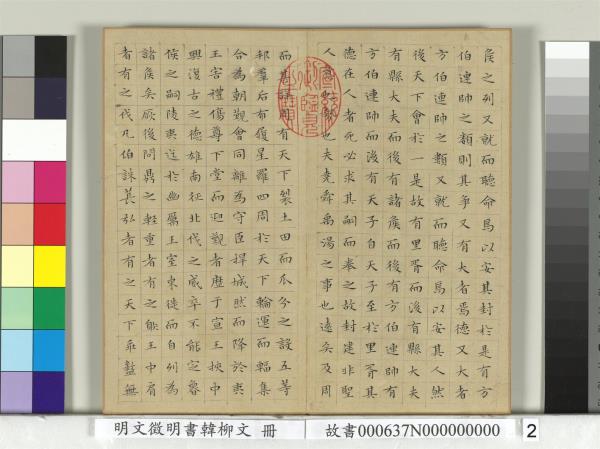 侯之列又就而聽命焉以安其封於是有方
伯連帥之類則其爭又有大者焉德又大者
方伯連帥之類又就而聽命焉以安其人然
後天下會於一是故有里胥而後有縣大夫
有縣大夫而後有諸侯而後有方伯連帥有
方伯連帥而後有天子自天子至於里胥其
德在人者死必求其嗣而奉之故封建非聖
人也夫堯舜禹湯之事也遠矣及周
而甚詳周有天下裂土田而瓜分之設五等
邦羣后布履星羅四周於天下輪運而輻集
合為朝覲會同離為守臣捍城然而降於夷
王害禮傷尊下堂而迎覲者歷于宣王挾中
興復古之德雄南征北伐之威卒不能定魯
侯之嗣陵夷迄於幽厲王室東徙而自列為
諸侯矣厥後問鼎之輕重者有之王中肩
者有之伐凡伯誅萇弘者有之天下乖盭無
明文徵明書韓柳文 冊
故書000637N000000000
2